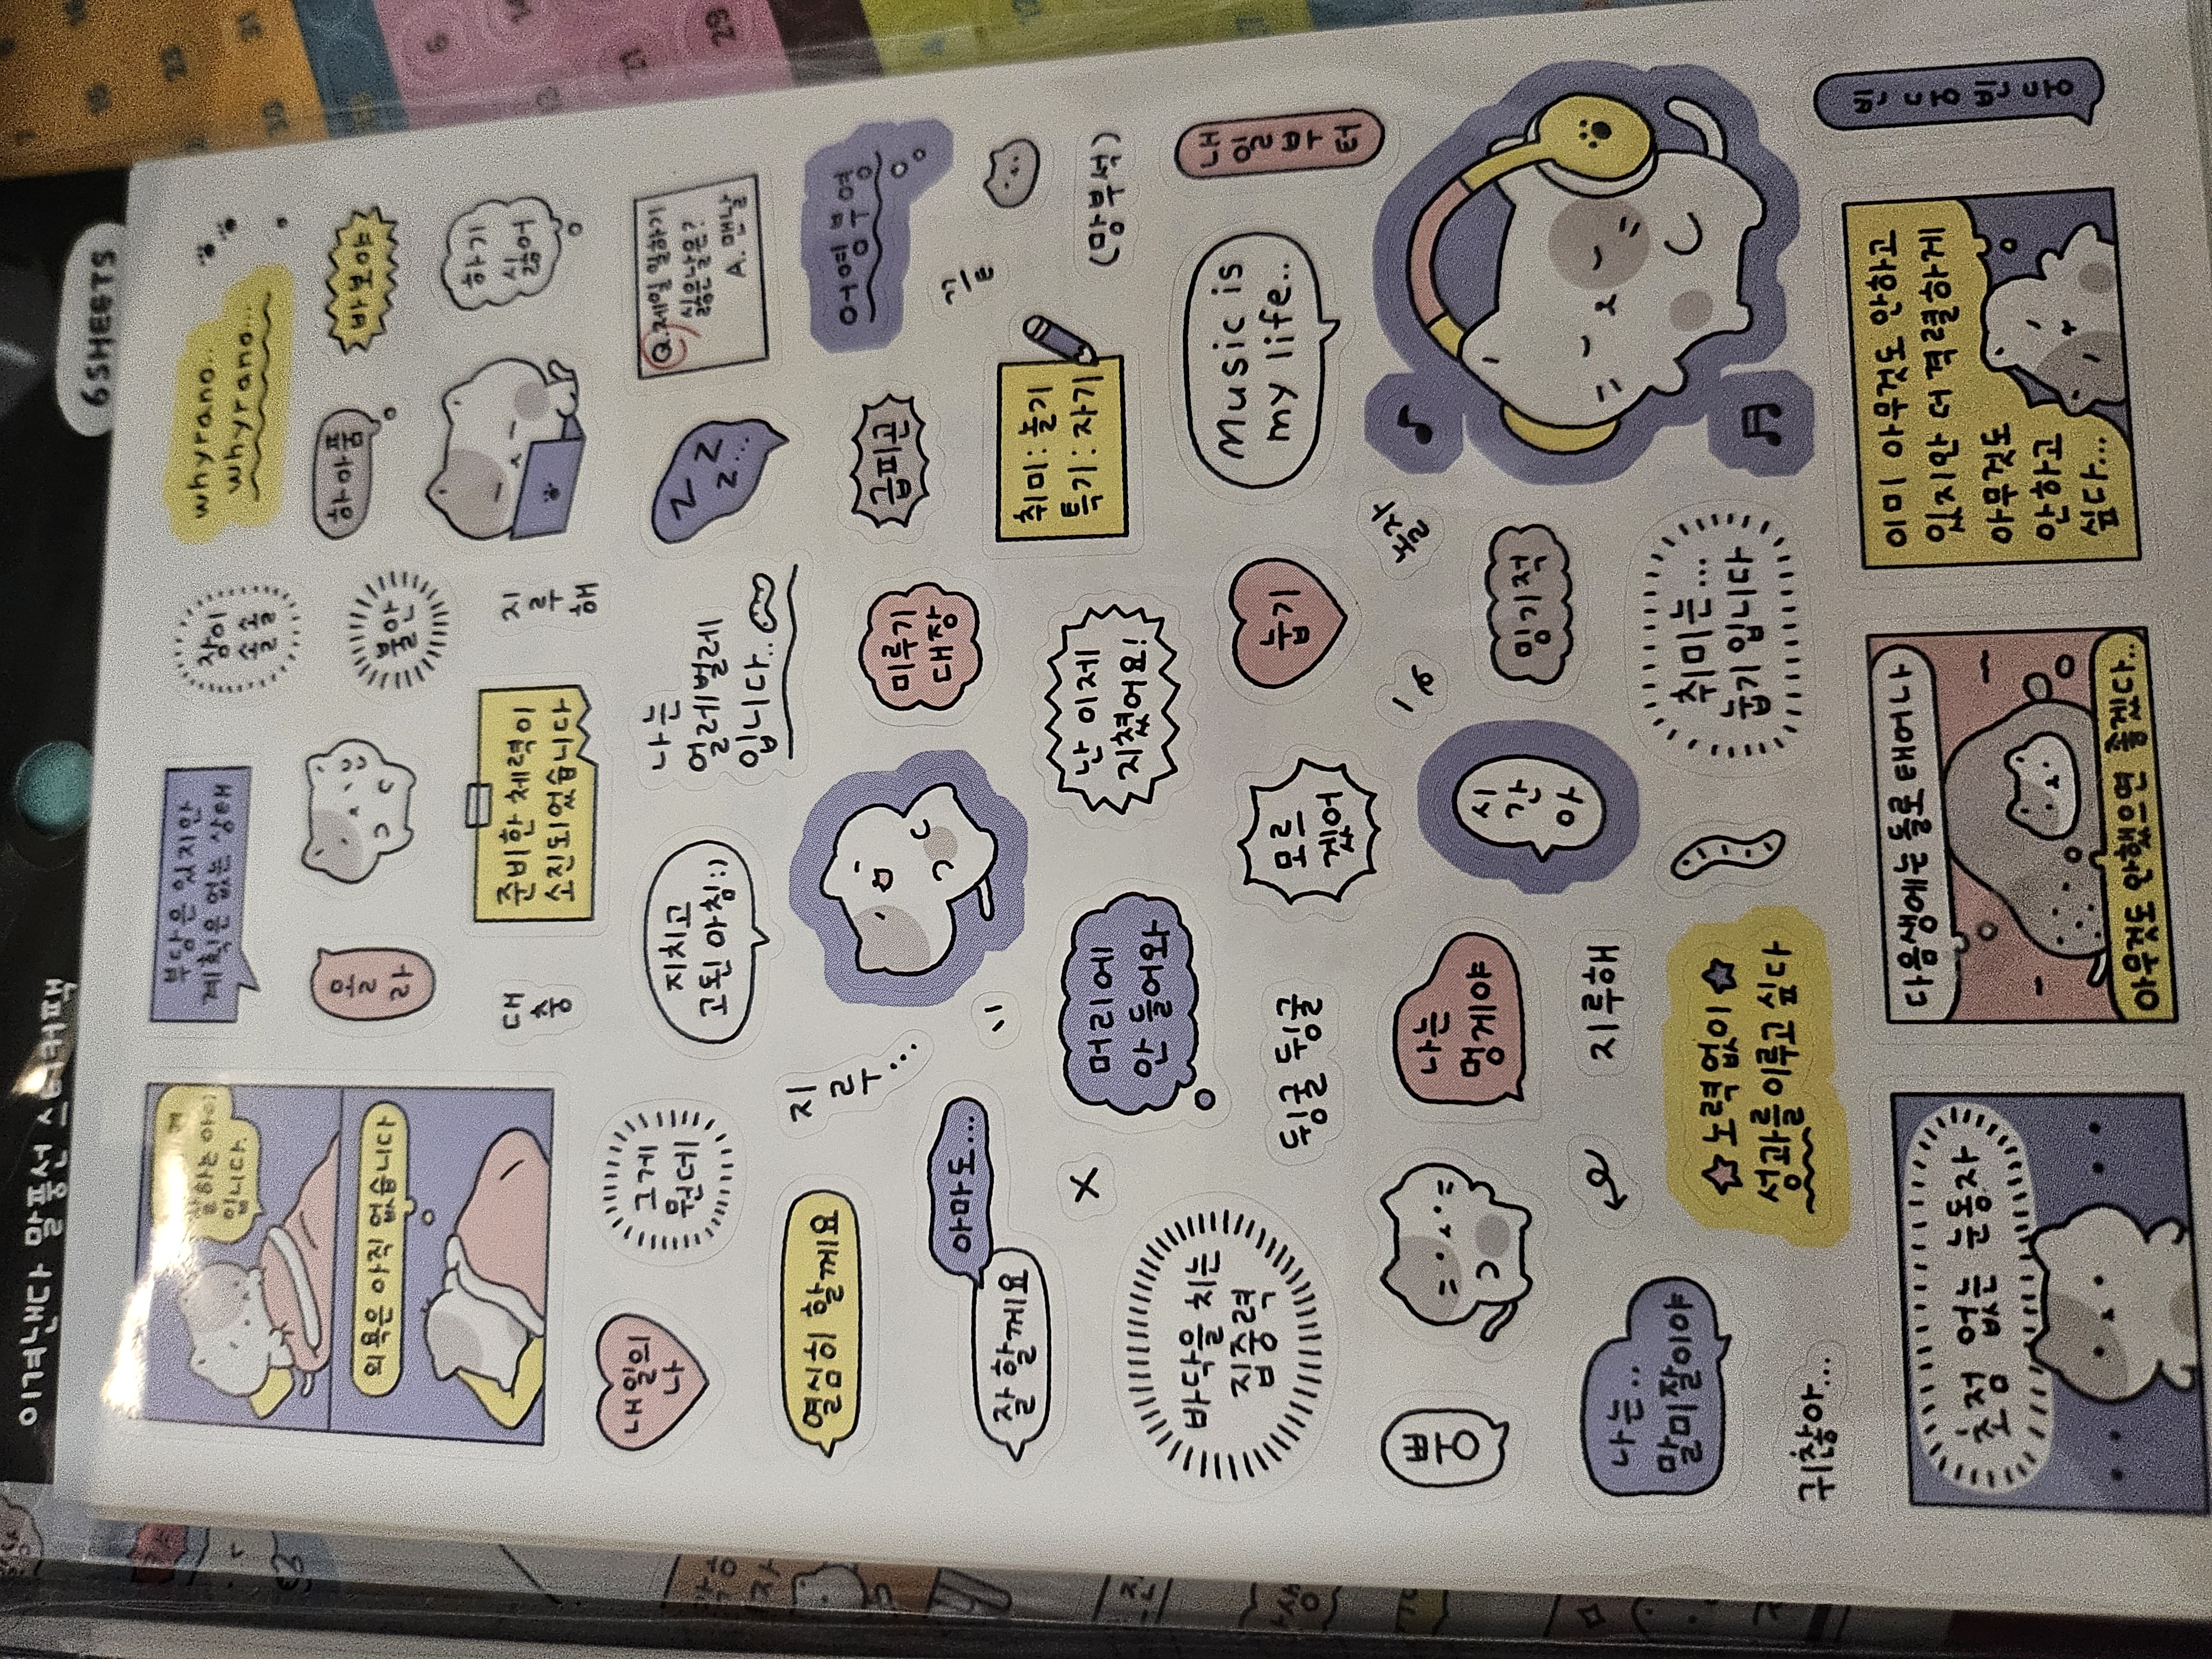 이겨낸다 말풍선 스티커팩
6SHEETS
부담은 있지만
계획은 없는 상태
잠이
솔솔
whyrano..
whyrano...
의욕은 아직 없습니다
하아품
하기
싫어
대
충
준비한 체력이
소진되었습니다
지
루
해
내일의
나
그게
뭔데
지치고
고된 아침:)
나는
얼레벌레
입니다..
Z Z
z...
Q.제일 일하기
싫은날은?
A. 맨날
열심히 할께요
지
루...
미루기
대장
급피곤
어영부영
잘할께요
아마도...
취미: 놀기
특기: 자기
머리에
안 들어와
난 이제
지쳤어요!
(망부석)
바닥을 치는
집중력
뒹굴 뒹굴
모르
겠어
눕기
Music is
my life..
내일부터
나는
멍게야
시
간
아
밍기적
놀자
나는..
말미잘이야
지루해
취미는...
눕기 입니다
귀찮아...
노력없이
성과를 이루고 싶다
빈둥빈둥
초점 없는 눈동자
다음생에는 돌로 태어나
아무것도 안했으면 좋겠다..
이미 아무것도 안하고
있지만 더 격렬하게
아무것도
안하고
싶다...